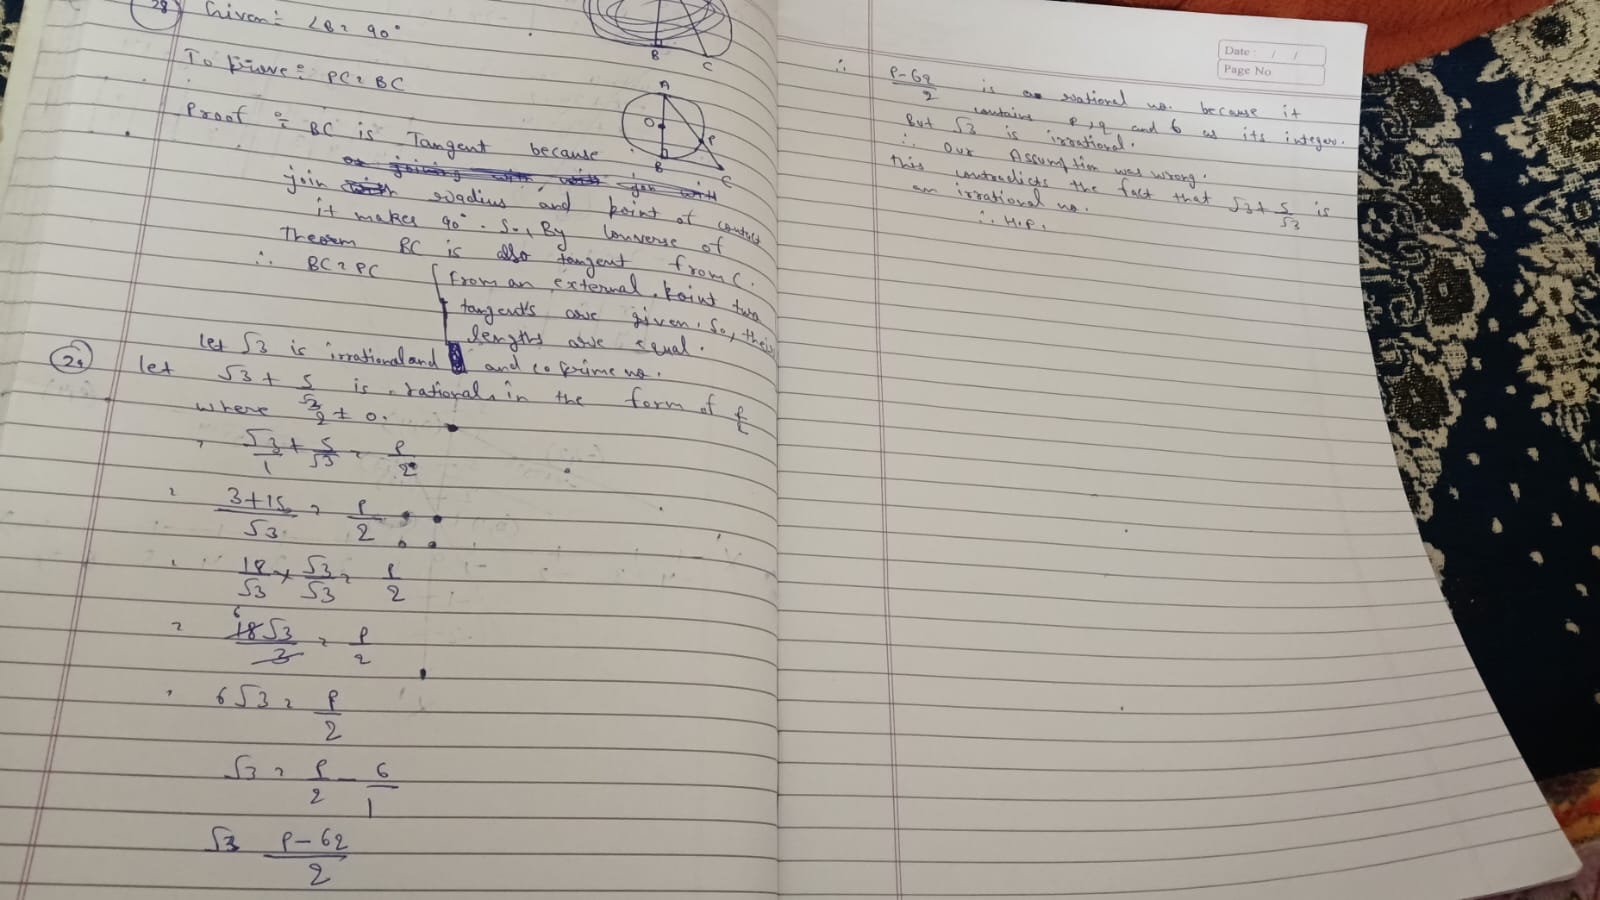 28 Given:- ∠B = 90°
B C
To prove:- PC = BC
A
O P
B C
Proof :- BC is Tangent because
join radius and point of contact
it makes 90°. So, By Converse of
Theorem BC is also tangent from C.
∴ BC = PC [From an external point two
tangent's are given. So, their
lengths are equal.
Let √3 is irrational and and co prime no.
29 let √3 + 5/√3 is rational in the form of p/q
where q ≠ 0.
= √3/1 + 5/√3 = p/q
= 3+15/√3 = p/q
= 18/√3 × √3/√3 = p/q
= 18√3/3 = p/q
6
= 6√3 = p/q
√3 = p/q - 6/1
√3 p-6q/q
Date : / /
Page No
∴ p-6q/q is a rational no. because it
contains p, q and 6 as its integer.
But √3 is irrational.
∴ Our Assumption was wrong.
This contradicts the fact that √3 + 5/√3 is
an irrational no.
∴ H.P.